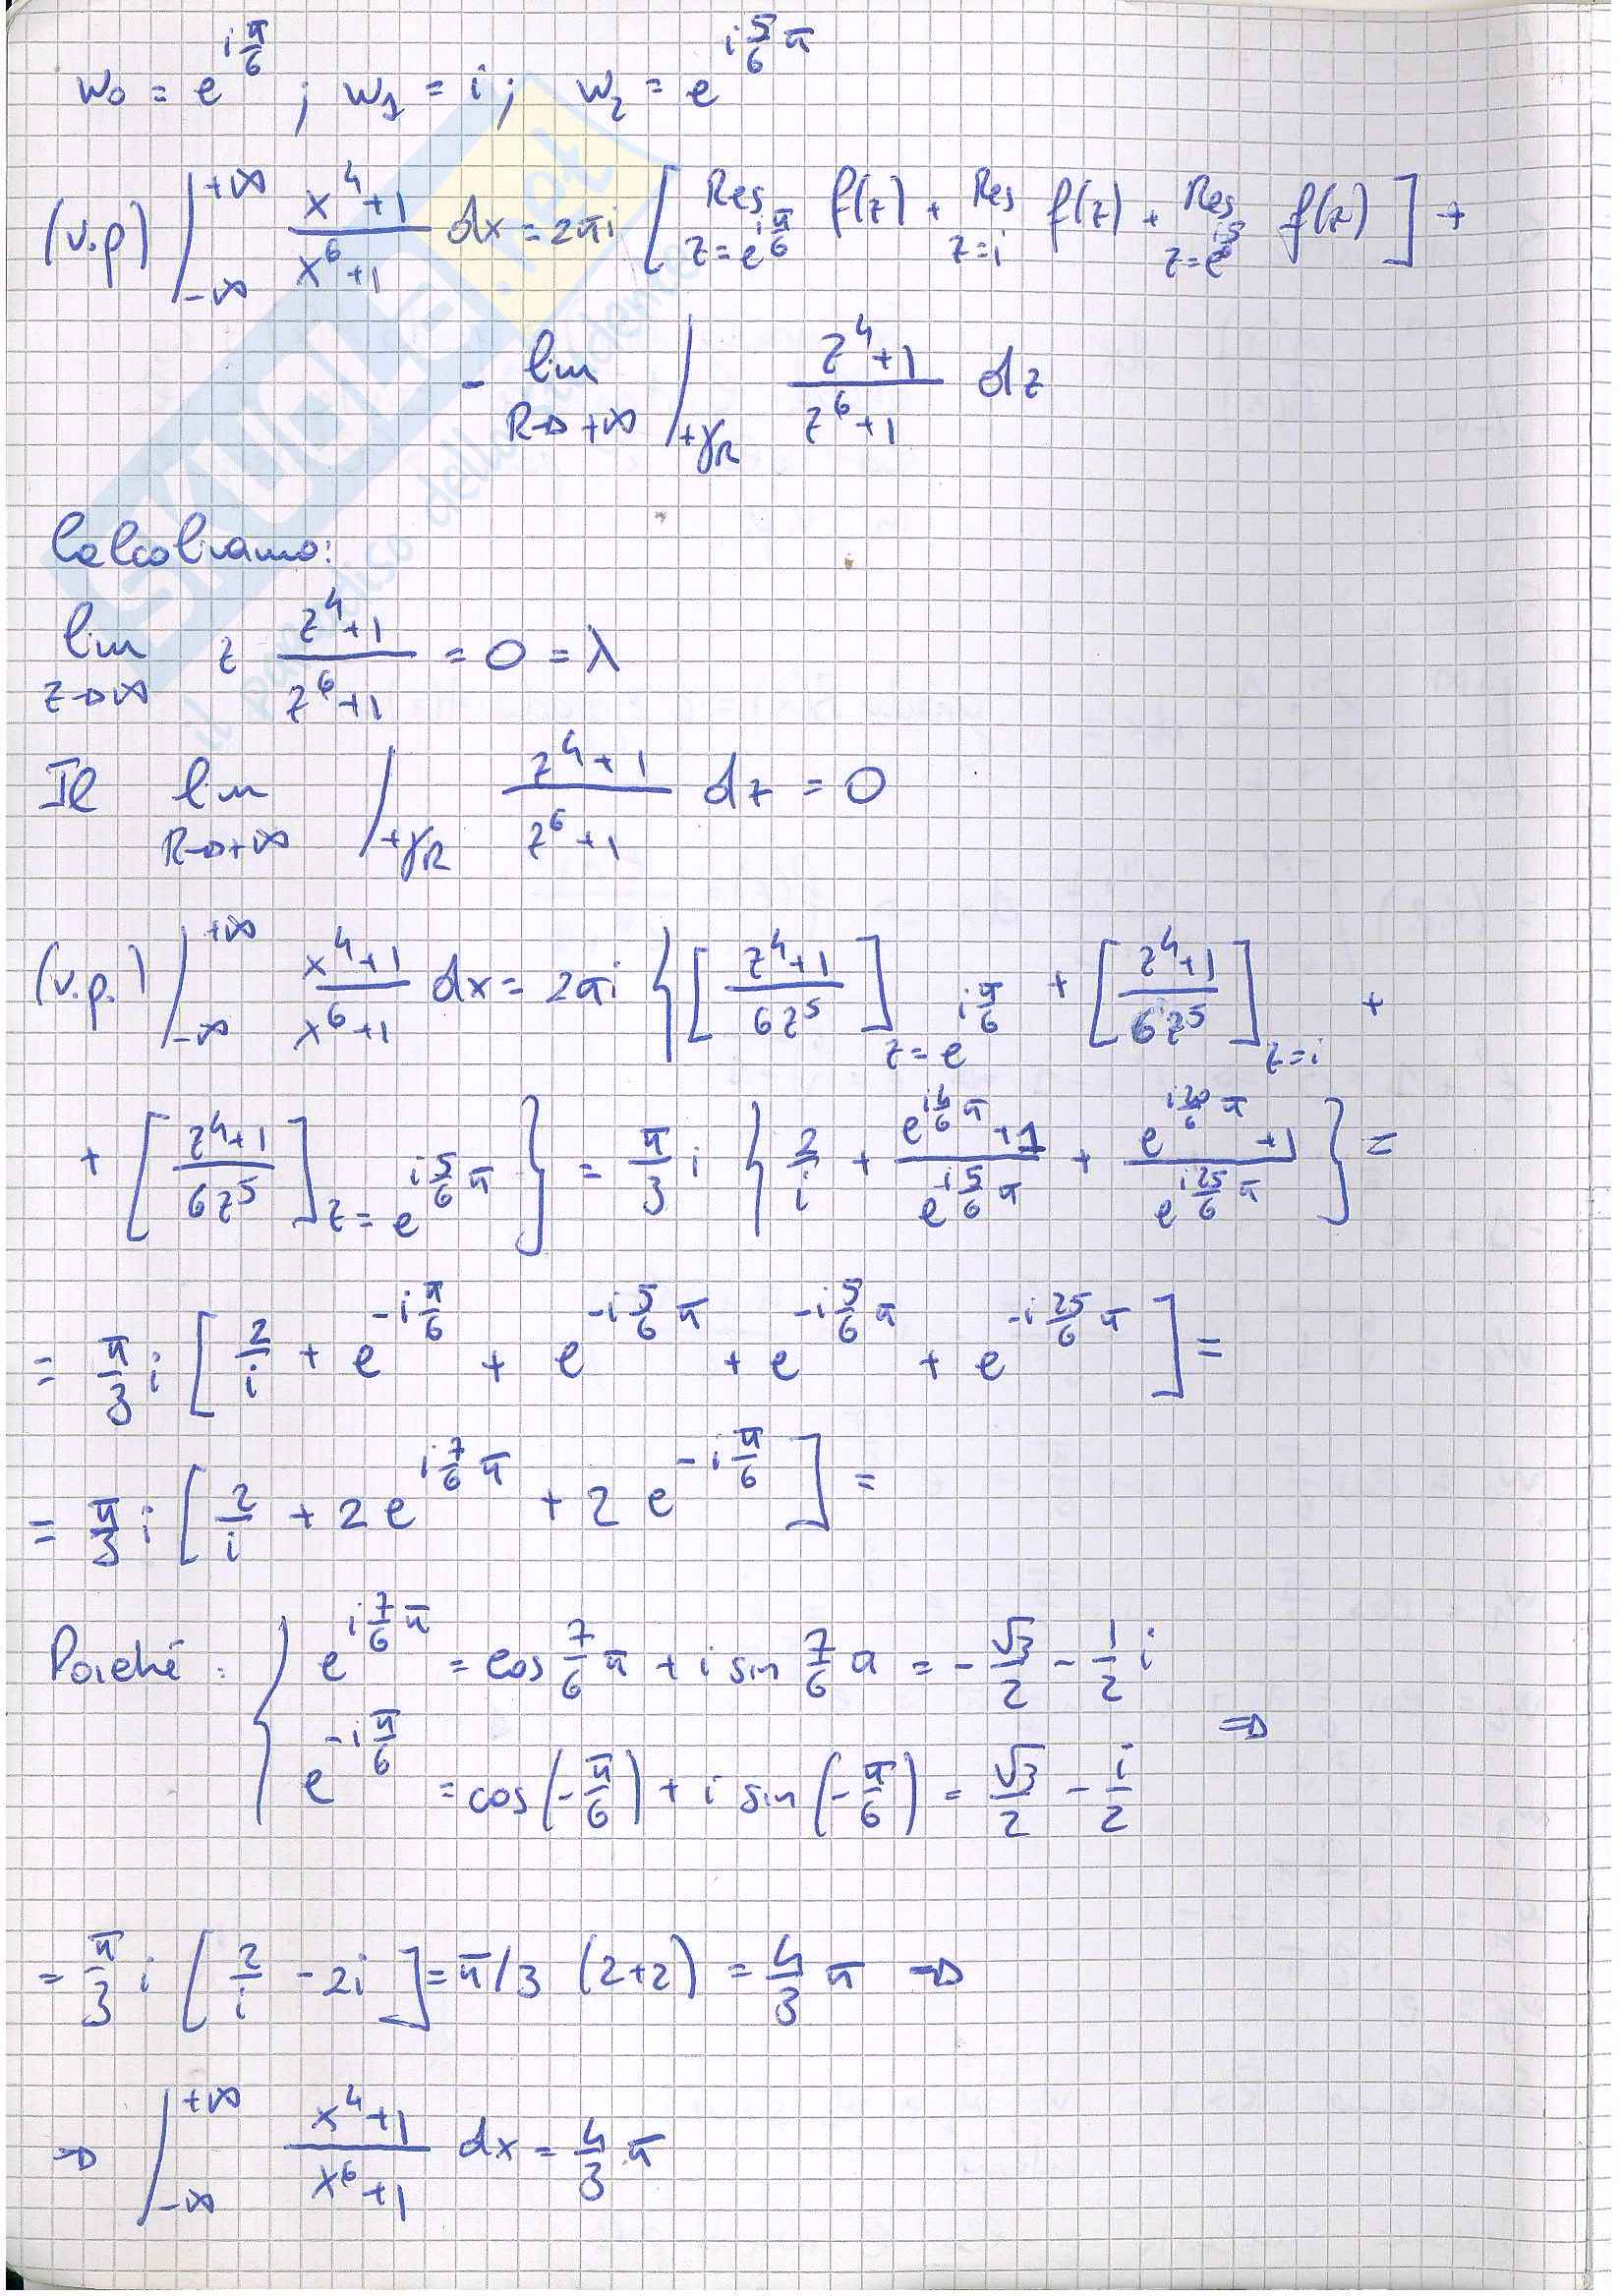 w₀ = e^{i π/6} ; w₁ = i ; w₂ = e^{i 5/6 π}
(v.p) ∫_{-∞}^{+∞} (x⁴+1)/(x⁶+1) dx = 2πi [ Res_{z=e^{iπ/6}} f(z) + Res_{z=i} f(z) + Res f(z) ] +
- lim_{R→+∞} ∫_{+γ_R} (z⁴+1)/(z⁶+1) dz
Calcoliamo:
lim_{z→∞} z (z⁴+1)/(z⁶+1) = 0 = λ
Il lim_{R→+∞} ∫_{+γ_R} (z⁴+1)/(z⁶+1) dz = 0
(v.p.) ∫_{-∞}^{+∞} (x⁴+1)/(x⁶+1) dx = 2πi { [ (z⁴+1)/(6z⁵) ]_{z=e^{i π/6}} + [ (z⁴+1)/(6z⁵) ]_{z=i} +
+ [ (z⁴+1)/(6z⁵) ]_{z=e^{i 5/6 π}} } = π/3 i { 2/i + (e^{i 4/6 π}+1)/(e^{i 5/6 π}) + (e^{i 20/6 π}+1)/(e^{i 25/6 π}) } =
= π/3 i [ 2/i + e^{-i π/6} + e^{-i 5/6 π} + e^{-i 5/6 π} + e^{-i 25/6 π} ] =
= π/3 i [ 2/i + 2 e^{i 7/6 π} + 2 e^{-i π/6} ] =
Poiché : { e^{i 7/6 π} = cos 7/6 π + i sin 7/6 π = - √3/2 - 1/2 i
e^{-i π/6} = cos(-π/6) + i sin(-π/6) = √3/2 - i/2 ⇒
= π/3 i [ 2/i - 2i ] = π/3 (2+2) = 4/3 π ⇒
⇒ ∫_{-∞}^{+∞} (x⁴+1)/(x⁶+1) dx = 4/3 π
SKUOLA.net
il paradiso dello studente